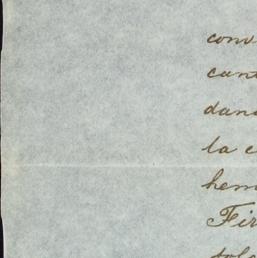 conv
cant
dand
la c
hem
Fir
sol